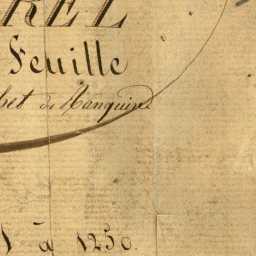 REL
Feuille
het de Hanguin
1 à 1250.